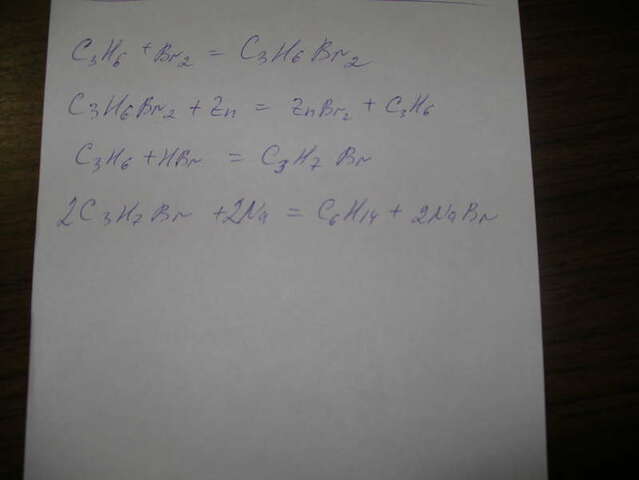 C3H6 + Br2 = C3H6Br2
C3H6Br2 + Zn = ZnBr2 + C3H6
C3H6 + HBr = C3H7Br
2C3H7Br + 2Na = C6H14 + 2NaBr